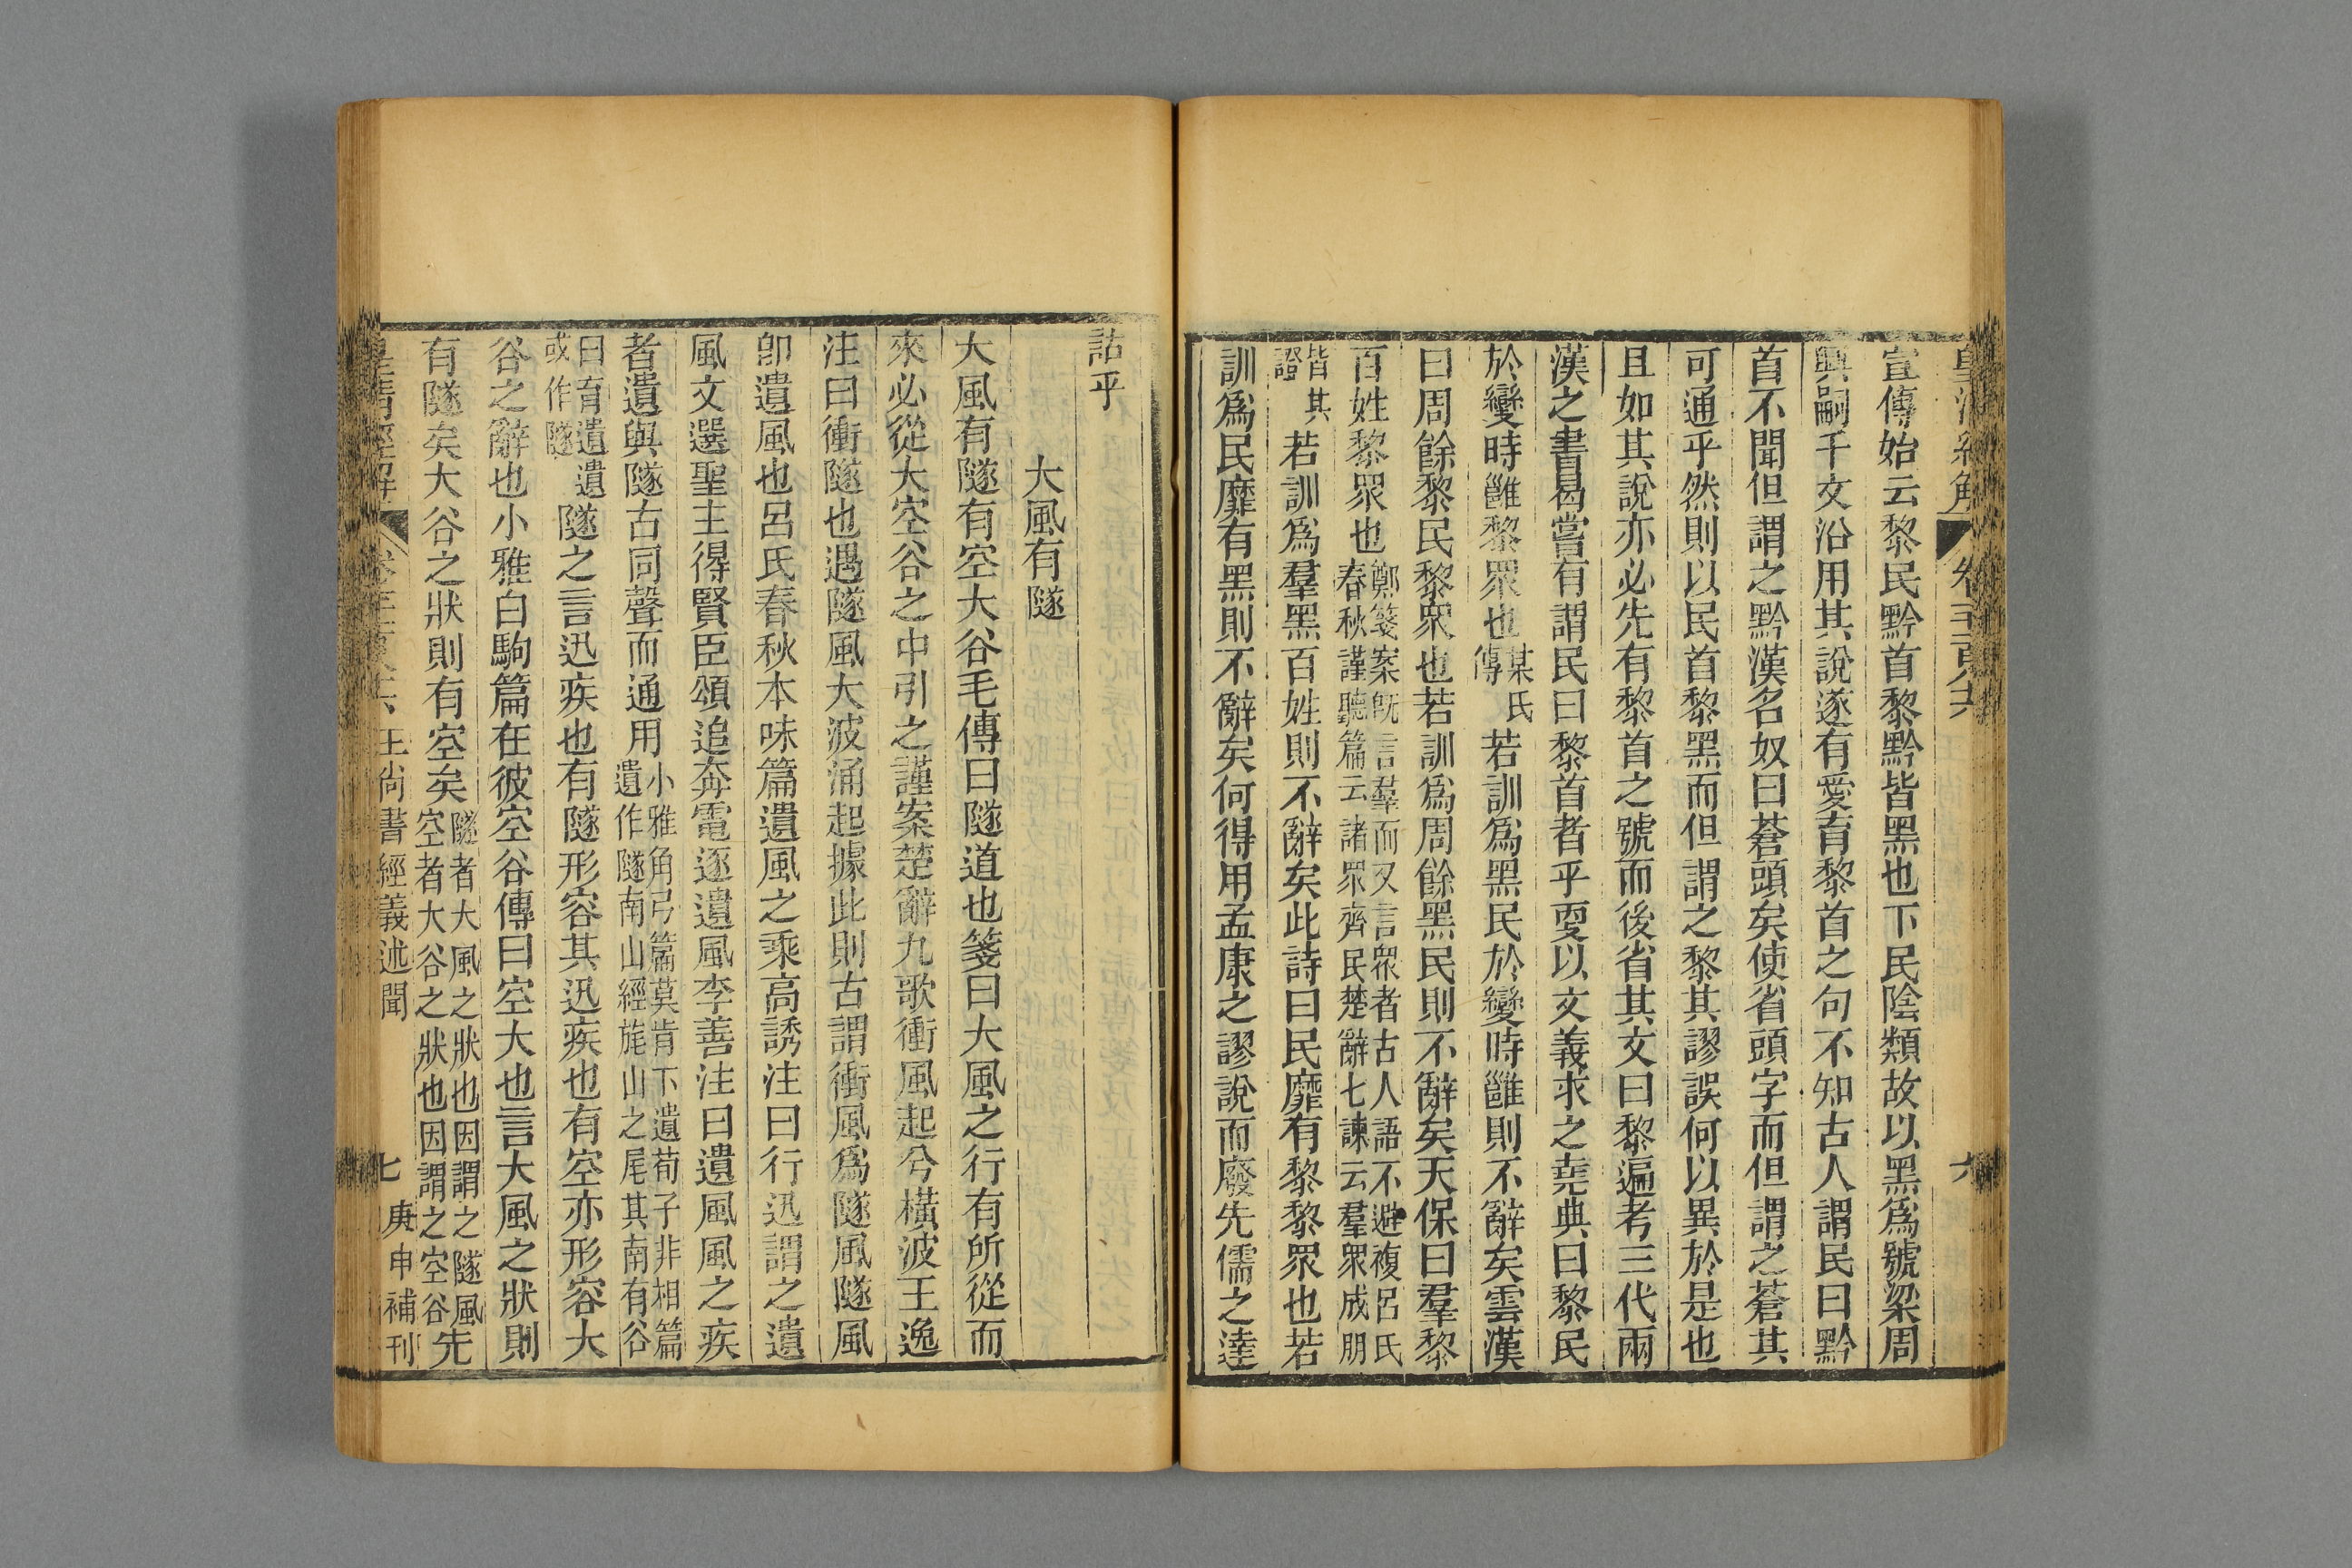 宣傳始云黎民黔首黎黔皆黑也下民陰類故以黑爲號梁周
興嗣千文沿用其說遂有愛育黎首之句不知古人謂民曰黔
首不聞但謂之黔漢名奴曰蒼頭矣使省頭字而但謂之蒼其
可通乎然則以民首黎黑而但謂之黎其謬誤何以異於是也
且如其說亦必先有黎首之號而後省其文曰黎遍考三代兩
漢之書曷嘗有謂民曰黎首者乎更以文義求之堯典曰黎民
於變時雝黎眾也某氏傳若訓爲黑民於變時雝則不辭矣雲漢
曰周餘黎民黎眾也若訓爲周餘黑民則不辭矣天保曰羣黎
百姓黎眾也鄭箋案既言羣而又言眾者古人語不避複呂氏春秋謹聽篇云諸眾齊民楚辭七諫云羣眾成朋
皆其證若訓爲羣黑百姓則不辭矣此詩曰民靡有黎黎眾也若
訓爲民靡有黑則不辭矣何得用孟康之謬說而廢先儒之達
詁乎
大風有隧
大風有隧有空大谷毛傳曰隧道也箋曰大風之行有所從而
來必從大空谷之中引之謹案楚辭九歌衝風起兮橫波王逸
注曰衝隧也遇隧風大波涌起據此則古謂衝風爲隧風隧風
卽遺風也呂氏春秋本味篇遺風之乘高誘注曰行迅謂之遺
風文選聖主得賢臣頌追奔電逐遺風李善注曰遺風風之疾
者遺與隧古同聲而通用小雅角弓篇莫肯下遺荀子非相篇遺作隧南山經旄山之尾其南有谷
曰育遺遺或作隧隧之言迅疾也有隧形容其迅疾也有空亦形容大
谷之辭也小雅白駒篇在彼空谷傳曰空大也言大風之狀則
有隧矣大谷之狀則有空矣隧者大風之狀也因謂之隧風空者大谷之狀也因謂之空谷先
皇清經解
王尚書經義述聞
七
庚申補刊